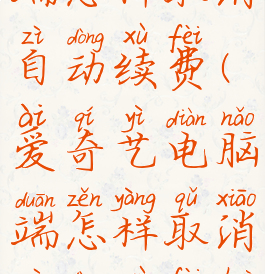 zì dòng xù fèi
自动续费(
ài qí yì diàn nǎo
爱奇艺电脑
duān zěn yàng qǔ xiāo
端怎样取消